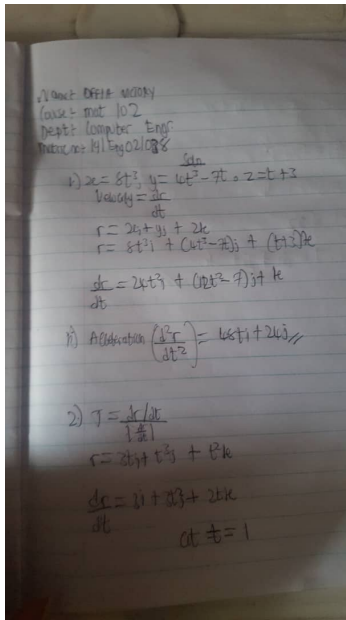 Name:- OFFIA VICTORY
Course:- mat 102
Dept:- Computer Engr.
Soln
1) x = 8t³, y = 4t³-7t, z = t+3
Velocity = dr/dt
r = xi + yj + zk
r = 8t³i + (4t³-7t)j + (t+3)k
dr/dt = 24t²i + (12t²-7)j + k
ii) Acceleration (d²r/dt²) = 48ti + 24j //
2) T = dr/dt / |dr/dt|
r = 3ti + t³j + t²k
at t = 1